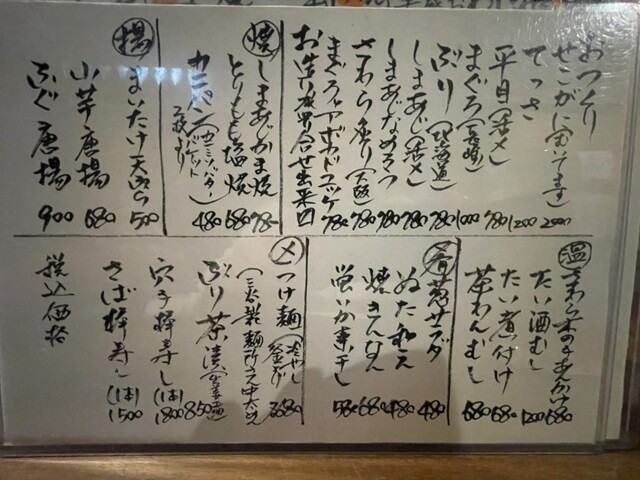 おつくり
せこがに(むいてます) 2500
てっさ 1200
平目(活〆) 780
まぐろ(長崎) 1000
ぶり(北海道) 780
しまあじ(活〆) 780
しまあじなめろう 780
さわら炙り(大阪) 780
まぐろアボカドユッケ 780
お造り盛り合せ出来〼
焼
しまあじかま焼 780
とりもも塩焼 680
カニパン(カニミソバター バケット) 480
揚
まいたけ天ぷら 500
山芋唐揚 680
ふぐ唐揚 900
温
さわら木の子あんかけ 680
たい酒むし 1200
たい煮付け 680
茶わんむし 680
肴
サラダ 480
ぬた和え 480
焼きぎんなん 680
蛍いか素干し 580
〆
つけ麺(冷やし 釜あげ) 680
(三谷製麺所
ぶり茶漬 850
穴子棒寿し(1本) 1800
さば棒寿し(1本) 1500
税込価格